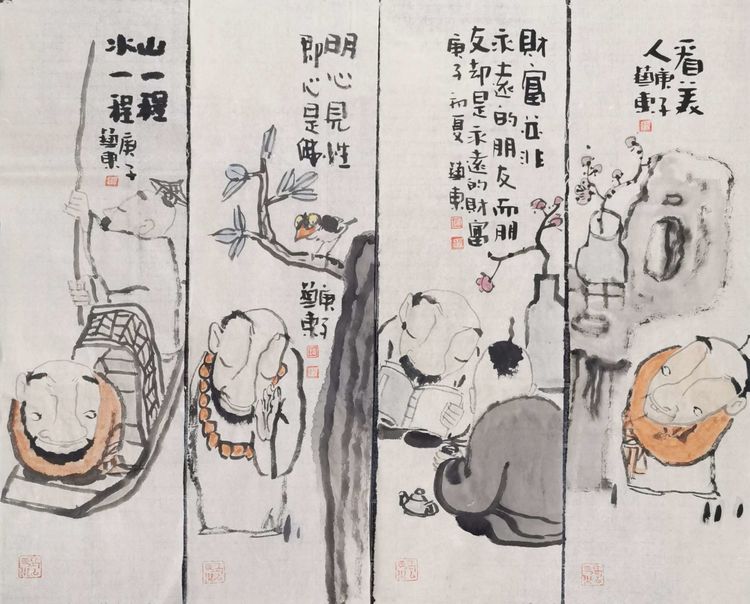 看美
人庚子
財富並非
永遠的朋友而朋
友却是永遠的財富
庚子初夏
明心見性
即心是佛
庚子
山一程
水一程
庚子